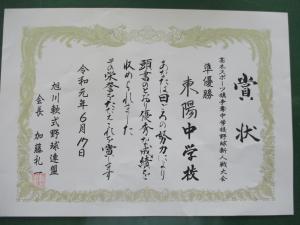 賞状
高木スポーツ旗争奪中学校野球新人戦大会
準優勝
東陽中学校
あなたは日ごろの努力により
頭書のとおり優秀な成績を
収められました
この栄誉をたたえこれを賞します
令和元年6月17日
旭川軟式野球連盟
会長 加藤礼一